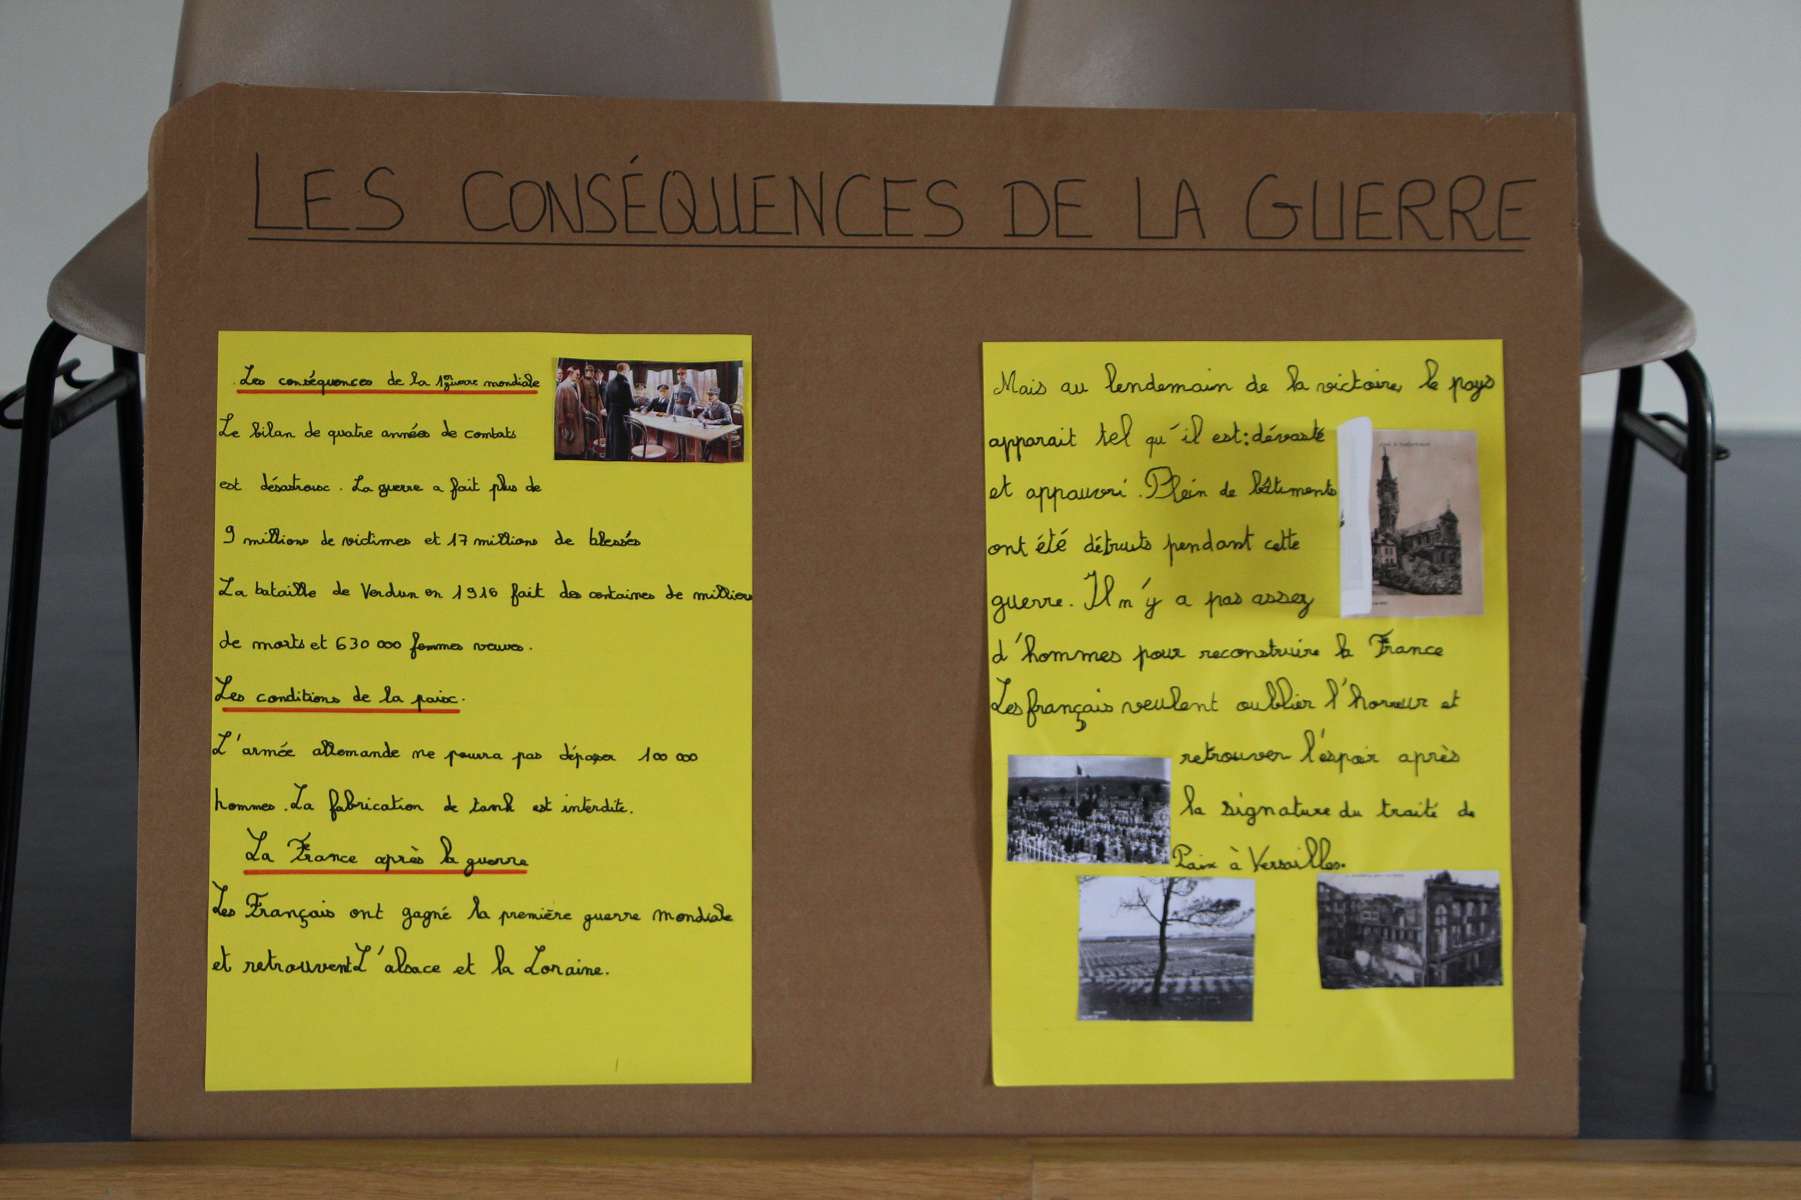 LES CONSÉQUENCES DE LA GUERRE
Les conséquences de la 1ère guerre mondiale
Le bilan de quatre années de combats
est désastreux. La guerre a fait plus de
9 millions de victimes et 17 millions de blessés
La bataille de Verdun en 1916 fait des centaines de milliers
de morts et 630 000 femmes veuves.
Les conditions de la paix.
L'armée allemande ne pourra pas dépasser 100 000
hommes. La fabrication de tank est interdite.
La France après la guerre
Les Français ont gagné la première guerre mondiale
et retrouvent L'alsace et la Loraine.
Mais au lendemain de la victoire, le pays
apparait tel qu'il est: dévasté
et appauvri. Plein de bâtiments
ont été détruits pendant cette
guerre. Il n'y a pas assez
d'hommes pour reconstruire la France
Les français veulent oublier l'horreur et
retrouver l'éspoir après
la signature du traité de
Paix à Versailles.